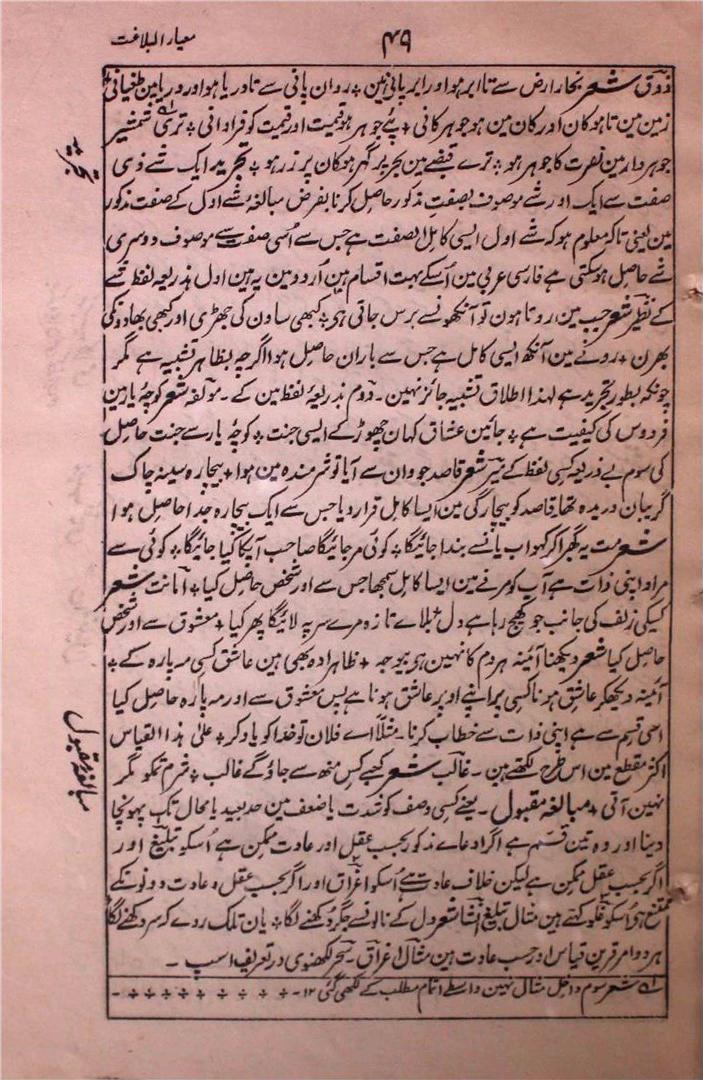 معیار البلاغت
۴۹
ذوق شعر بخار ارض سے تا ابر ہو اور ابر پانی ہین ٭ روان پانی سے تا دریا ہو اور دریا مین طغیانی
زمین مین تا ہو کان اور کان مین ہو جوہر کانی ٭ پئے جوہر ہو قیمت اور قیمت کو فراوانی ٭ تری شمشیر
جوہردار مین نصرت کا جوہر ہو ٭ ترے قبضے مین بحر پر گہر ہو کان پر زر ہو ٭ تجرید ایک شے ذی
تجرید
صفت سے ایک اور شے موصوف بصفت مذکور حاصل کرنا بغرض مبالغۂ شے اول کے صفت مذکور
مین یعنی تاکہ معلوم ہو کہ شے اول ایسی کامل الصفت ہے جس سے اُسی صفت سے موصوف دوسری
شے حاصل ہو سکتی ہے فارسی عربی مین اُسکے بہت اقسام ہین اُردو مین یہ ہین اول بذریعہ لفظ سے
کے نظیر شعر جب مین روتا ہون تو آنکھونسے برس جاتی ہی ٭ کبھی ساون کی جھڑی اور کبھی بھادونکی
بھرن ٭ رونے مین آنکھ ایسی کامل ہے جس سے باران حاصل ہوا اگرچہ بظاہر تشبیہ ہے مگر
چونکہ بطور تجرید ہے لہذا اطلاق تشبیہ جائز نہین ۔ دوم بذریعۂ لفظ مین کے ۔ مؤلفہ شعر کوچۂ یار مین
فردوس کی کیفیت ہے ٭ جائین عشاق کہان چھوڑ کے ایسی جنت ٭ کوچۂ یار سے جنت حاصل
کی سوم بے ذریعہ کسی لفظ کے میر شعر قاصد جو وان سے آیا تو شرمندہ مین ہوا ٭ بیچارہ سینہ چاک
گریبان دریدہ تھا۔ قاصد کو بیچارگی مین ایسا کامل قرار دیا جس سے ایک بیچارہ جدا حاصل ہوا
شعر مت یہ گھبرا کر کہو اب یانسے بندا جائیگا ٭ کوئی مر جائیگا صاحب آپکا کیا جائیگا ٭ کوئی سے
مراد اپنی ذات ہے آپ کو مرنے مین ایسا کامل سمجھا جس سے اور شخص حاصل کیا ٭ امانت شعر
کسیکی زلف کی جانب جو کھچ رہا ہے دل ٭ بلاے تازہ مرے سر پہ لائیگا پھر کیا ٭ معشوق سے اور شخص
حاصل کیا شعر دیکھنا آئینہ ہر دم کا نہین ہی بیوجہ ٭ ظاہرا وہ بھی ہین عاشق کسی مہ پارہ کے ٭
آئینہ دیکھکر عاشق ہونا کسی پر اپنے اوپر عاشق ہونا ہے پس معشوق سے اور مہ پارہ حاصل کیا
اسی قسم سے ہے اپنی ذات سے خطاب کرنا ۔ مثلاً اے فلان تو خدا کو یاد کر ٭ علیٰ ہذا القیاس
اکثر مقطع مین اس طرح لکھتے ہین ۔ غالب شعر کعبے کس منھ سے جاؤ گے غالب ٭ شرم تمکو مگر
نہین آتی ٭ مبالغہ مقبول ۔ یعنے کسی وصف کو شدت یا ضعف مین حد بعید یا محال تک پہونچا
مبالغہ مقبول
دینا اور وہ تین قسم ہے اگر ادعاے مذکور بحسب عقل اور عادت ممکن ہے اُسکو تبلیغ اور
اگر بحسب عقل ممکن ہے لیکن خلاف عادت ہے اُسکو اغراق اور اگر بحسب عقل و عادت دونونکے
ممتنع ہی اُسکو غلو کہتے ہین مثال تبلیغ انشا شعر دل کے نالونسے جگر دکھنے لگا ٭ یان تلک روے کہ سر دکھنے لگا
ہر دو امر قرین قیاس اور حسب عادت ہین مثال اغراق ۔ سحر لکھنوی در تعریف اسپ ۔
۱؎ شعر سوم داخل مثال نہین واسطے اتمام مطلب کے لکھی گئی ۱۲